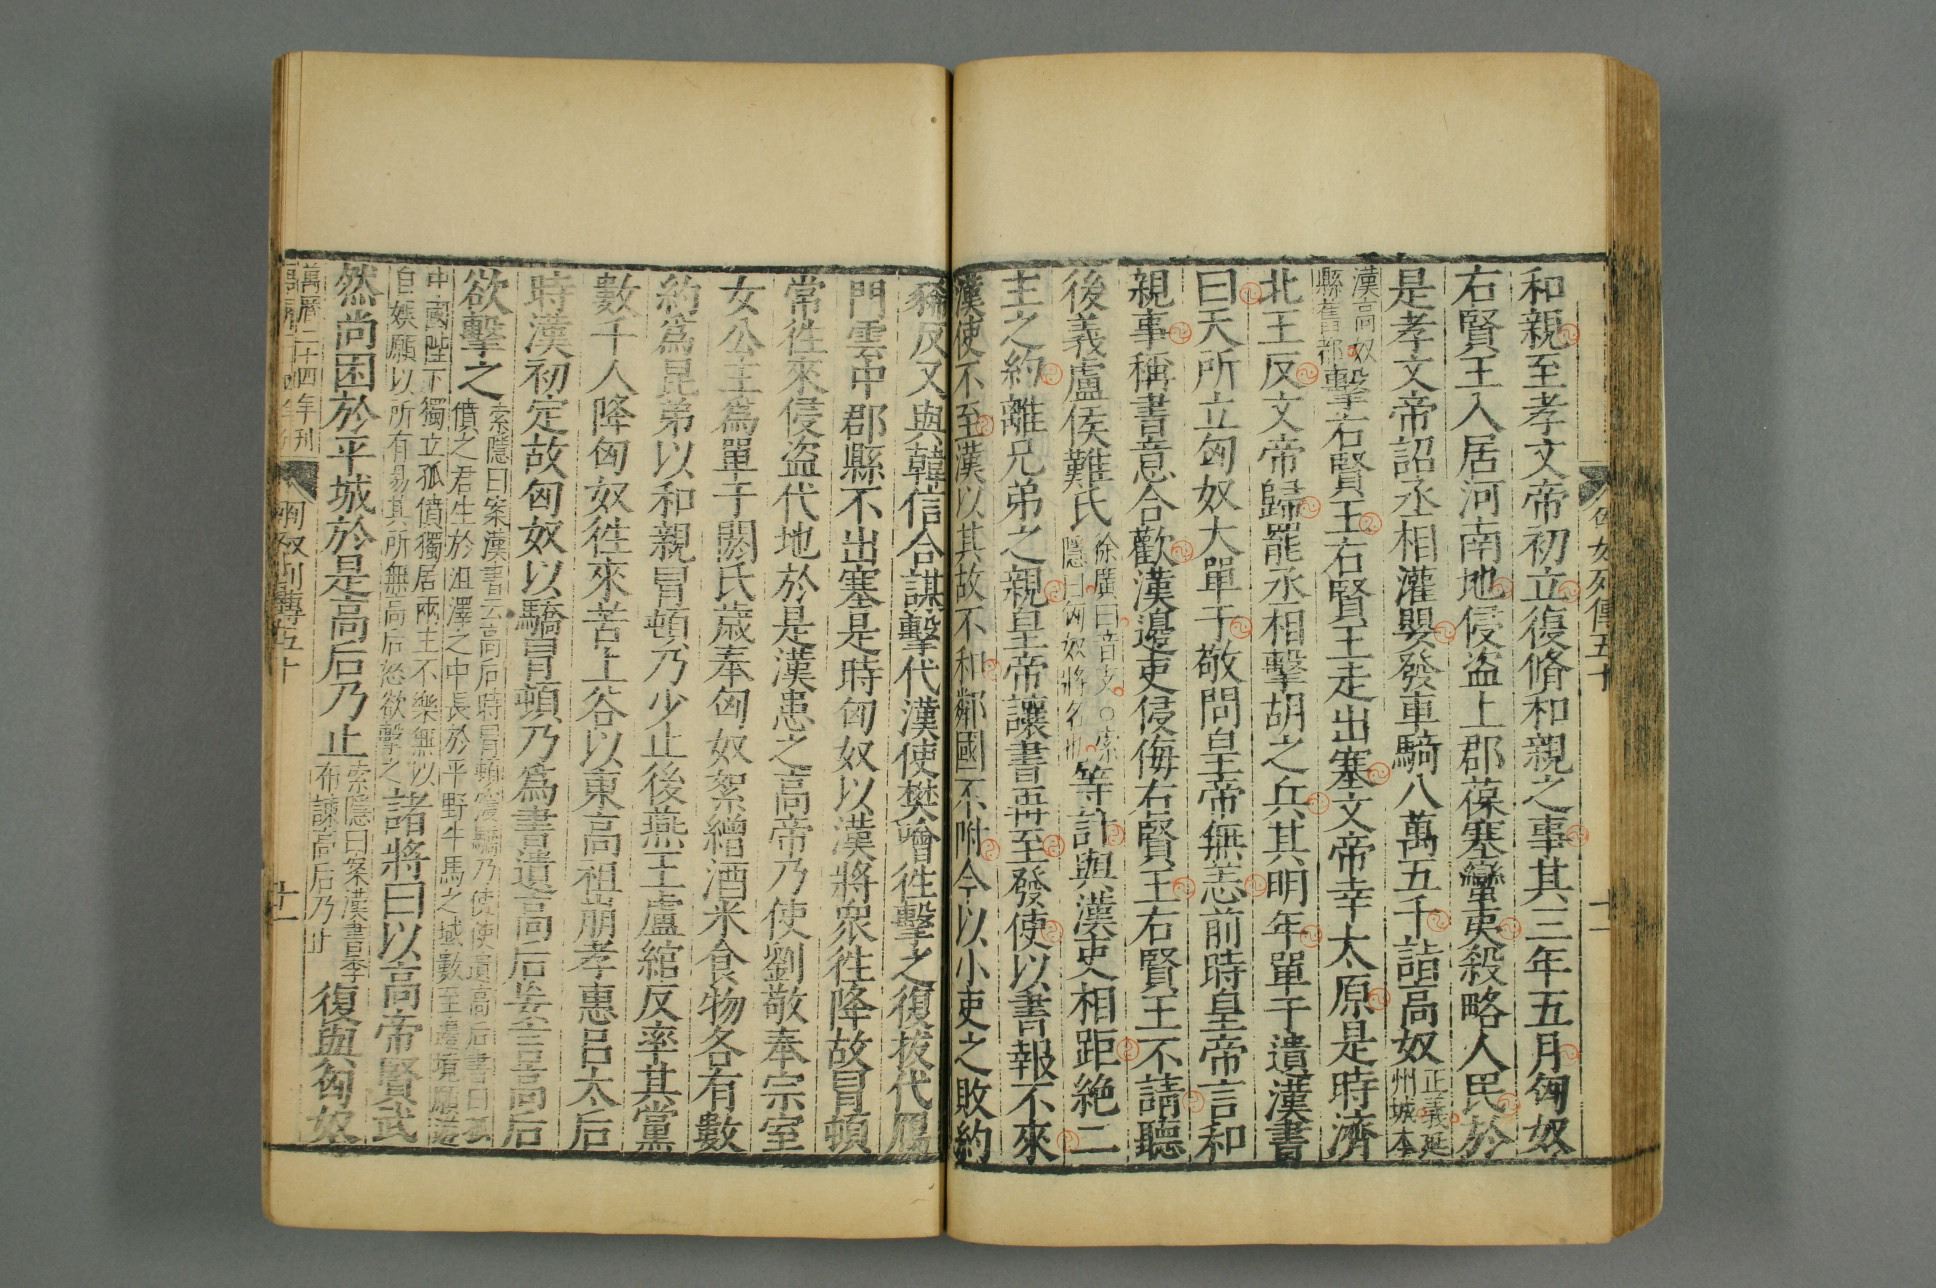 匈奴列傳五十
和親至孝文帝初立復脩和親之事其三年五月匈奴
右賢王入居河南地侵盜上郡葆塞蠻夷殺略人民於
是孝文帝詔丞相灌嬰發車騎八萬五千詣高奴正義延州城本
漢高奴縣舊都擊右賢王右賢王走出塞文帝幸太原是時濟
北王反文帝歸罷丞相擊胡之兵其明年單于遺漢書
曰天所立匈奴大單于敬問皇帝無恙前時皇帝言和
親事稱書意合歡漢邊吏侵侮右賢王右賢王不請聽
後義盧侯難氏徐廣曰音支○索隱曰匈奴將名也等計與漢吏相距絕二
主之約離兄弟之親皇帝讓書再至發使以書報不來
漢使不至漢以其故不和鄰國不附今以小吏之敗約
豨反又與韓信合謀擊代漢使樊噲往擊之復拔代鴈
門雲中郡縣不出塞是時匈奴以漢將眾往降故冒頓
常往來侵盜代地於是漢患之高帝乃使劉敬奉宗室
女公主為單于閼氏歲奉匈奴絮繒酒米食物各有數
約為昆弟以和親冒頓乃少止後燕王盧綰反率其黨
數千人降匈奴往來苦上谷以東高祖崩孝惠呂太后
時漢初定故匈奴以驕冒頓乃為書遺高后妄言高后
欲擊之索隱曰案漢書云高后時冒頓寖驕乃使使遺高后書曰孤僨之君生於沮澤之中長於平野牛馬之域數至邊境願遊
中國陛下獨立孤僨獨居兩主不樂無以自娛願以所有易其所無高后怒欲擊之諸將曰以高帝賢武
然尚困於平城於是高后乃止索隱曰案漢書季布諫高后乃止復與匈奴
萬曆二十四年刊 匈奴列傳五十 十一